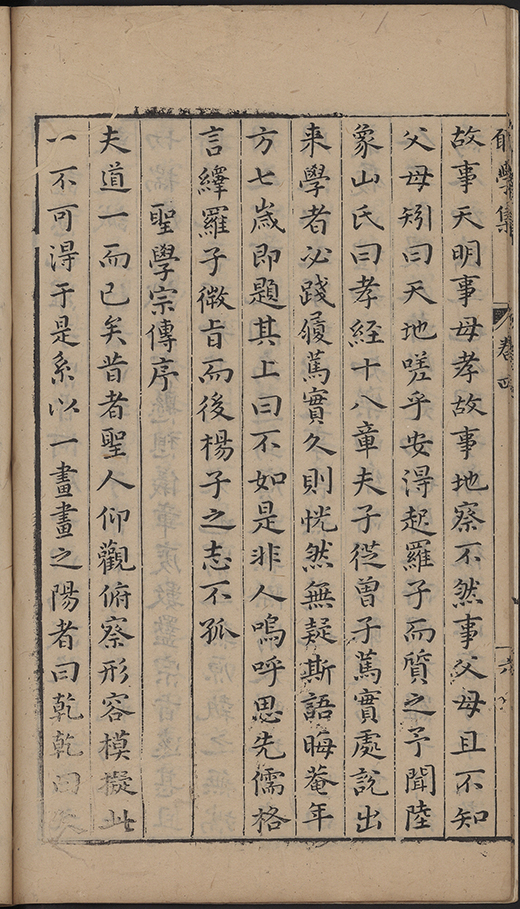 學集
卷四
六
故事天明事母孝故事地察不然事父母且不知
父母矧曰天地嗟乎安得起羅子而質之予聞陸
象山氏曰孝經十八章夫子從曽子篤實處說出
来學者必踐履篤實久則恍然無疑斯語晦菴年
方七歲即題其上曰不如是非人嗚呼思先儒格
言繹羅子微旨而後楊子之志不孤
聖學宗傳序
夫道一而已矣昔者聖人仰觀俯察形容模擬此
一不可得于是系以一畫畫之陽者曰乾乾曰大